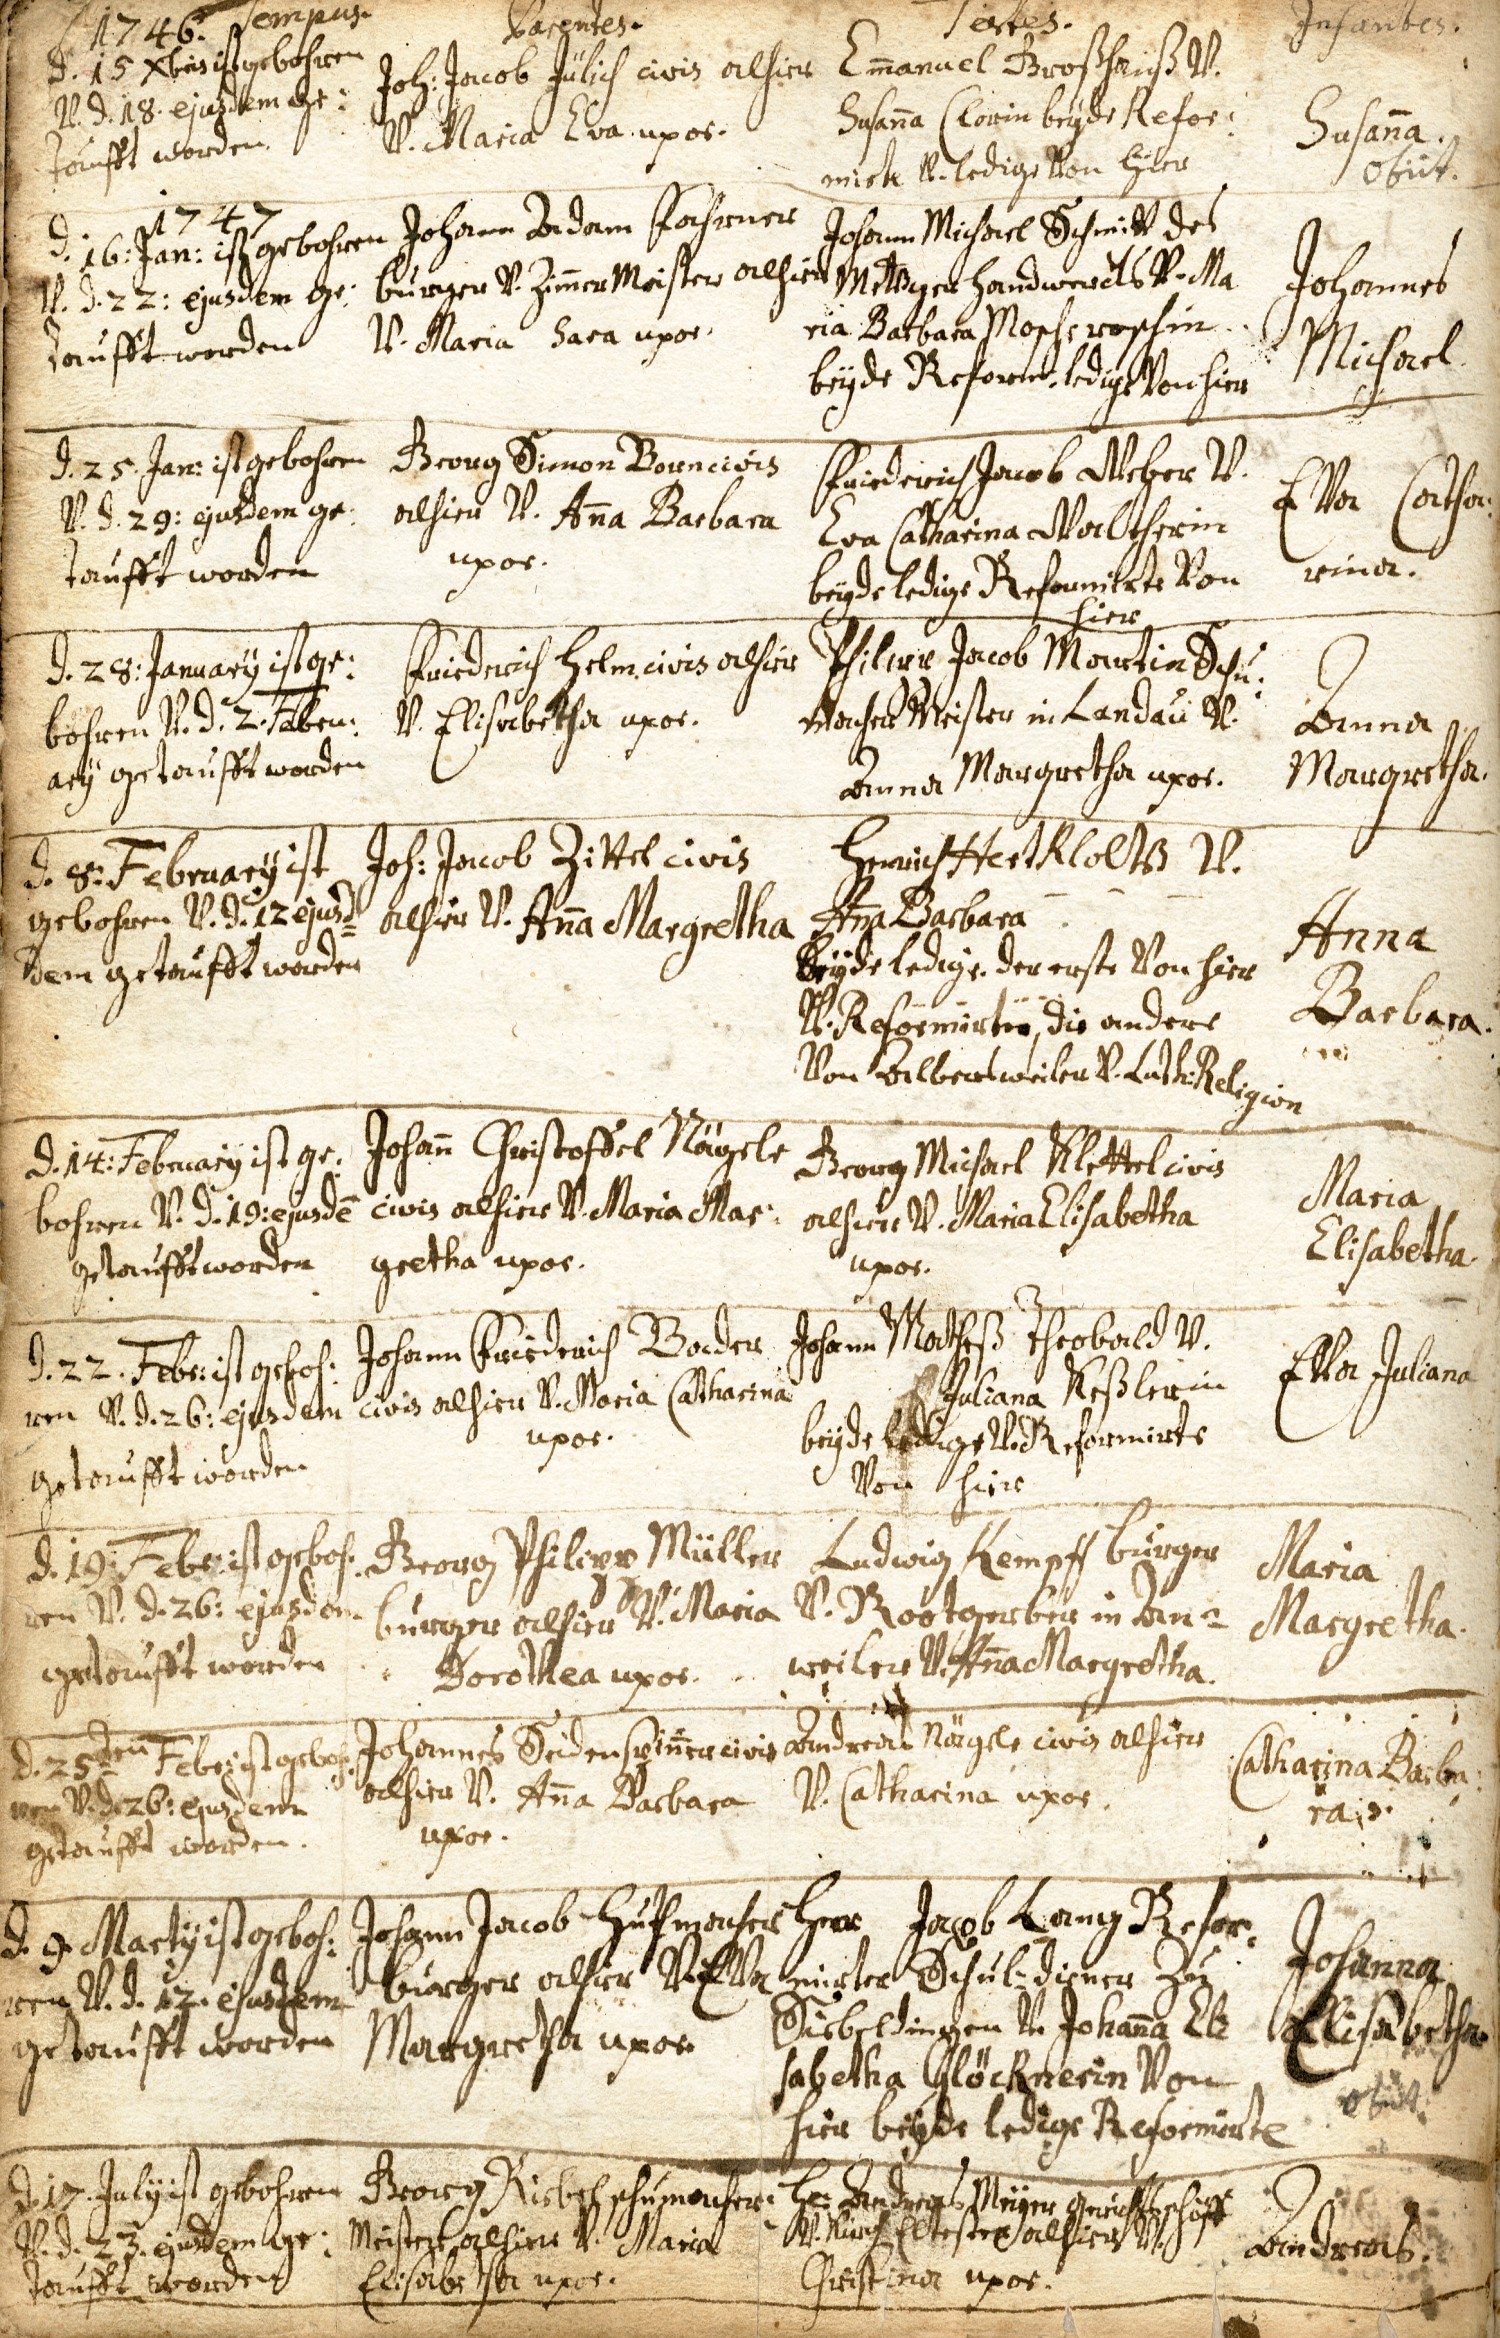 1746. Tempus. Parentes. Testes. Infantes.
d. 15 Xbris ist gebohren
V. d. 18. ejusdem ge:
taufft worden
Joh: Jacob Jülich civis alhier
V. Maria Eva uxor.
Emanuel Großhanß V.
Susaña Clorin beyde Refor:
mirte V. ledige Von hier
Susaña.
obiit.
1747
d. 16: Jan: ist gebohren
V. d. 22: ejusdem ge:
taufft worden
Johann Adam Fahrner
burger V. Zimer Meister alhier
V. Maria Sara uxor.
Johann Michael Schmitt des
Metzger handwercks V. Ma
ria Barbara
beyde Reform. ledige Von hier
Johannes
Michael.
d. 25. Jan: ist gebohren
V. d. 29: ejusdem ge:
taufft worden
Georg Simon Born civis
alhier V. Aña Barbara
uxor.
Friederich Jacob Weber V.
Eva Catharina Waltherin
beyde ledige Reformirte Von
hier
EVa Catha:
rina.
d. 28: January ist ge:
bohren V. d. 2. Febru:
ary getaufft worden
Friederich Helm civis alhier
V. Elisabetha uxor.
Philipp Jacob Martin Schu:
macher Meister in Landau V.
Anna Margretha uxor.
Anna
Margretha.
d. 8: February ist
gebohren V. d. 12 ejus=
dem getaufft worden
Joh: Jacob Zittel civis
alhier V. Aña Margretha
Henrich Hertklotz V.
Aña Barbara
beyde ledige. der erste Von hier
V. Reformirter, die andere
Von Albersweiler V. Luth: Religion
Anna
Barbara.
d. 14: February ist ge:
bohren V. d. 19: ejusdē
getaufft worden
Johañ Christoffel Nägele
civis alhier V. Maria Mar:
gretha uxor.
Georg Michael Klettel civis
alhier V. Maria Elisabetha
uxor.
Maria
Elisabetha.
d. 22. Febr: ist geboh:
ren V. d. 26: ejusdem
getaufft worden
Johann Friederich Bader
civis alhier V. Maria Catharina
uxor.
Johann Matheß Theobald V.
Juliana Keßlerin
beyde ledige V. Reformirte
Von hier
EVa Juliana
d. 19: Febr: ist geboh:
ren V. d. 26: ejusdem
getaufft worden
Georg Philipp Müller
burger alhier V. Maria
Dorothea uxor.
Ludwig Kempff burger
V. Rootgerber in An=
weiler V. Aña Margretha.
Maria
Margretha.
d. 25ten Febr: ist geboh:
ren V. d. 26: ejusdem
getaufft worden.
Johannes Seidenspiñer civis
alhier V. Aña Barbara
uxor.
Andreas Nägele civis alhier
V. Catharina uxor.
Catharina Barba:
ra.
d. 9. Marty ist geboh:
ren V. d. 12. ejusdem
getaufft worden
Johann Jacob Hutmacher
burger alhier V. EVa
Margretha uxor.
Herr Jacob Lang Refor:
mirter Schul=diener Zu
Siebeldingen V. Johaña Eli
sabetha Glöcknerin Von
hier beyde ledige Reformirte
Johanna
Elisabetha.
obiit.
d. 17. July ist gebohren
V. d. 23. ejusdem ge:
taufft worden
Georg Riebel schumacher
Meister alhier V. Maria
Elisabetha uxor.
Hr: Andreas Meyer gerichtsschöff
V. Kirch Eltester alhier V.
Christina uxor.
Andreas.